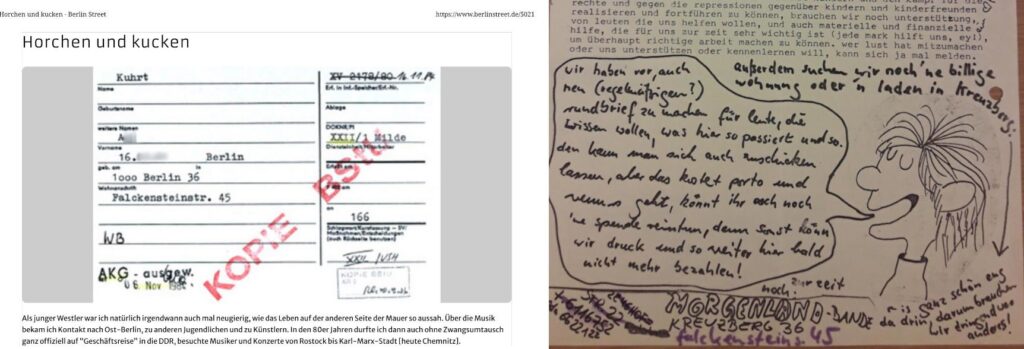 Horchen und kucken - Berlin Street
https://www.berlinstreet.de/5021
Horchen und kucken
Kuhrt
Name
Geburtsname
weitere Namen
A
Vorname
16. Berlin
geb. am in
1000 Berlin 36
Wohnanschrift
Falckensteinstr. 45
WB
AKG - ausgew.
06. Nov
XV 2178/80 16.11.84
Erf. in Inf.-Speicher/Erf.-Nr.
Ablage
XXII/1 Milde
Diensteinheit/Mitarbeiter
Erfaßt am
an
166
Schlagwort/Kurzfassung - SV/
Maßnahmen/Entscheidungen
(auch Rückseite benutzen)
KOPIE BStU
KOPIE BStU
AR 3
Als junger Westler war ich natürlich irgendwann auch mal neugierig, wie das Leben auf der anderen Seite der Mauer so aussah. Über die Musik
bekam ich Kontakt nach Ost-Berlin, zu anderen Jugendlichen und zu Künstlern. In den 80er Jahren durfte ich dann auch ohne Zwangsumtausch
ganz offiziell auf "Geschäftsreise" in die DDR, besuchte Musiker und Konzerte von Rostock bis Karl-Marx-Stadt (heute Chemnitz).
rechte und gegen die repressionen gegenüber kindern und kinderfreunden
realisieren und fortführen zu können, brauchen wir noch unterstützung,
von leuten die uns helfen wollen, und auch materielle und finanzielle
hilfe, die für uns zur zeit sehr wichtig ist (jede mark hilft uns, ey!),
um überhaupt richtige arbeit machen zu können. wer lust hat mitzumachen
oder uns unterstützen oder kennenlernen will, kann sich ja mal melden.
außerdem suchen wir noch 'ne billige
wohnung oder 'n laden in Kreuzberg:
wir haben vor, auch
nen (regelmäßigen?)
rundbrief zu machen für leute, die
wissen wollen, was hier so passiert und so.
den kann man sich auch zuschicken
lassen, aber das kostet porto und
wenn's geht, könnt ihr auch noch
'ne spende reintun, denn sonst könn
wir druck und so weiter hier bald
nicht mehr bezahlen!
noch: zur zeit
MORGENLAND-BANDE
KREUZBERG 36
falckenstein 45
is ganz schön eng
da drin, darum brauchen
wir dringend was
anders!